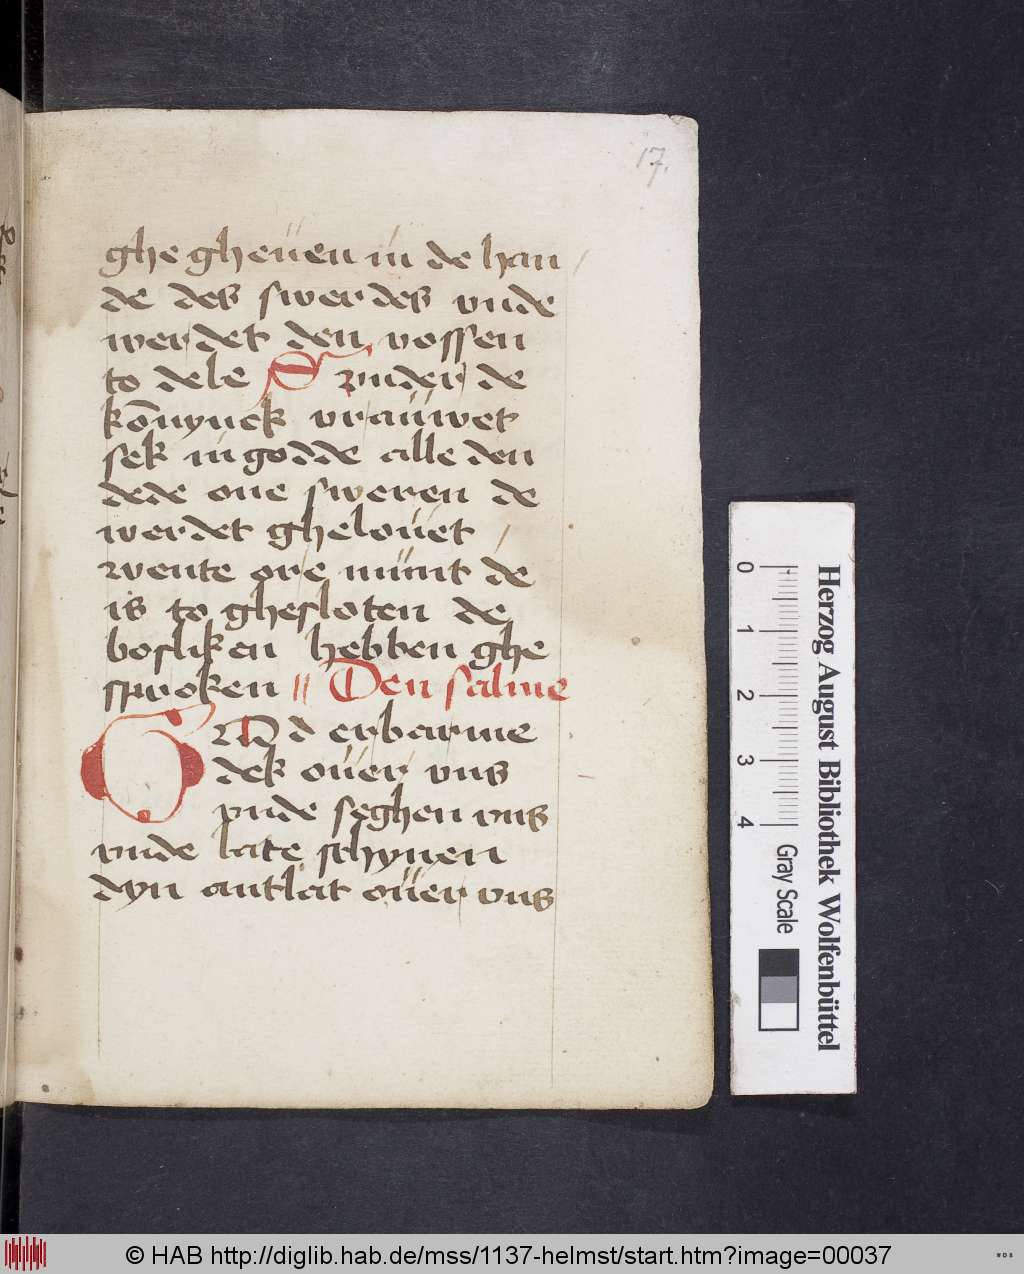 17.
ghe gheuen in de han
de des swerdes vnde
werdet den vossen
to dele S vnder de
konnynck vrauwet
sek in godde alle den
dede one sweren de
werdet ghelouet
wente ore munt de
is to ghesloten de
bosliken hebben ghe
sproken // Den salme
GOd erbarme
dek ouer vns
vnde seghen vns
vnde late schynen
dyn antlat ouer vns
0 1 2 3 4
Herzog August Bibliothek Wolfenbüttel
Gray Scale
© HAB http://diglib.hab.de/mss/1137-helmst/start.htm?image=00037